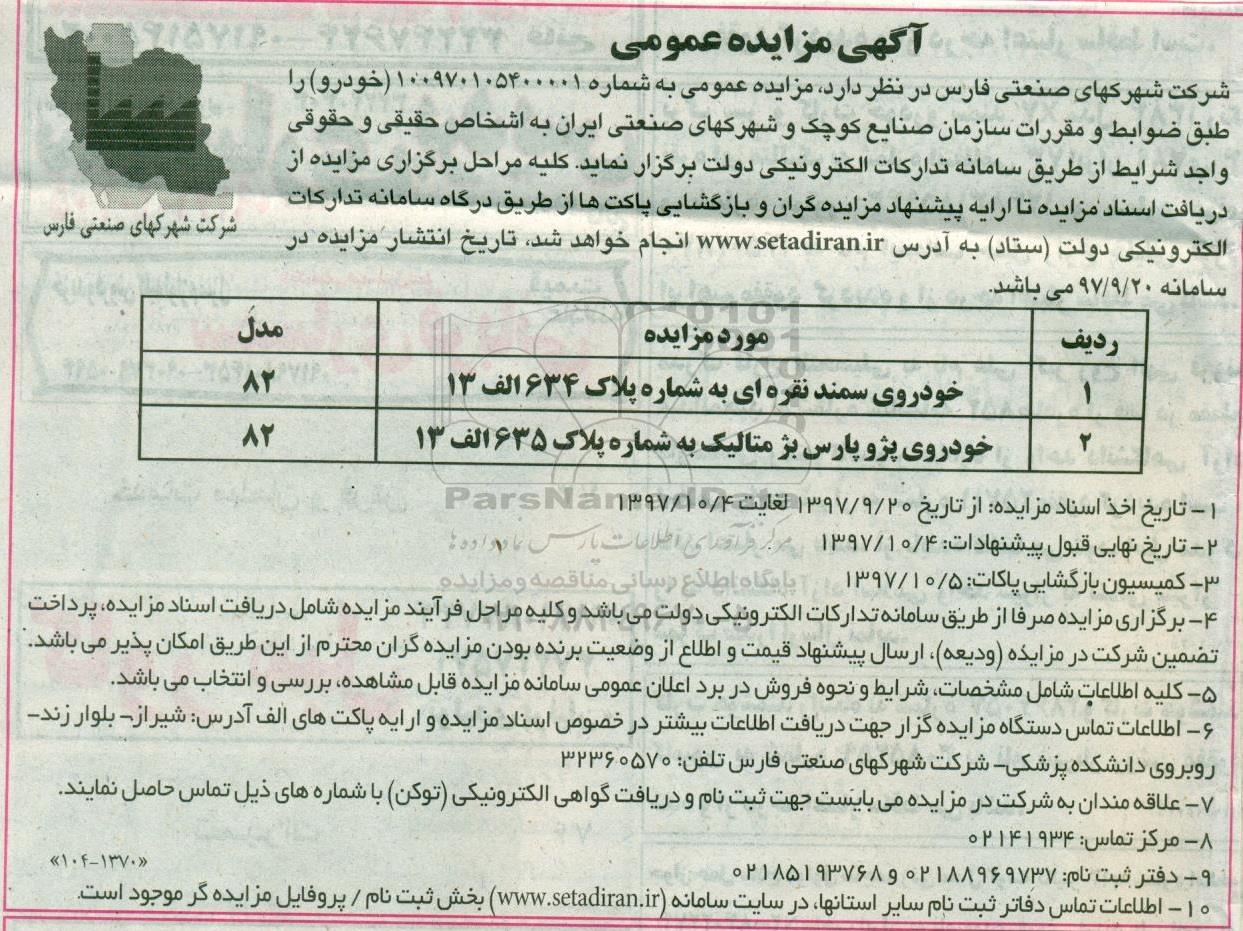 آگهی مزایده عمومی
شرکت شهرکهای صنعتی فارس در نظر دارد، مزایده عمومی به شماره ۱۰۰۹۷۰۱۰۵۴۰۰۰۰۰۱ (خودرو) را
طبق ضوابط و مقررات سازمان صنایع کوچک و شهرکهای صنعتی ایران به اشخاص حقیقی و حقوقی
واجد شرایط از طریق سامانه تدارکات الکترونیکی دولت برگزار نماید. کلیه مراحل برگزاری مزایده از
دریافت اسناد مزایده تا ارایه پیشنهاد مزایده گران و بازگشایی پاکت ها از طریق درگاه سامانه تدارکات
الکترونیکی دولت (ستاد) به آدرس www.setadiran.ir انجام خواهد شد، تاریخ انتشار مزایده در
سامانه ۹۷/۹/۲۰ می باشد.
شرکت شهرکهای صنعتی فارس
ردیف مورد مزایده مدل
۱ خودروی سمند نقره ای به شماره پلاک ۶۳۴ الف ۱۳ ۸۲
۲ خودروی پژو پارس بژ متالیک به شماره پلاک ۶۳۵ الف ۱۳ ۸۲
ParsNamadData
۱- تاریخ اخذ اسناد مزایده: از تاریخ ۱۳۹۷/۹/۲۰ لغایت ۱۳۹۷/۱۰/۴
۲- تاریخ نهایی قبول پیشنهادات: ۱۳۹۷/۱۰/۴
۳- کمیسیون بازگشایی پاکات: ۱۳۹۷/۱۰/۵
۴- برگزاری مزایده صرفا از طریق سامانه تدارکات الکترونیکی دولت می باشد و کلیه مراحل فرآیند مزایده شامل دریافت اسناد مزایده، پرداخت
تضمین شرکت در مزایده (ودیعه)، ارسال پیشنهاد قیمت و اطلاع از وضعیت برنده بودن مزایده گران محترم از این طریق امکان پذیر می باشد.
۵- کلیه اطلاعات شامل مشخصات، شرایط و نحوه فروش در برد اعلان عمومی سامانه مزایده قابل مشاهده، بررسی و انتخاب می باشد.
۶- اطلاعات تماس دستگاه مزایده گزار جهت دریافت اطلاعات بیشتر در خصوص اسناد مزایده و ارایه پاکت های الف آدرس: شیراز- بلوار زند-
روبروی دانشکده پزشکی- شرکت شهرکهای صنعتی فارس تلفن: ۳۲۳۶۰۵۷۰
۷- علاقه مندان به شرکت در مزایده می بایست جهت ثبت نام و دریافت گواهی الکترونیکی (توکن) با شماره های ذیل تماس حاصل نمایند.
۸- مرکز تماس: ۰۲۱۴۱۹۳۴
۹- دفتر ثبت نام: ۰۲۱۸۸۹۶۹۷۳۷ و ۰۲۱۸۵۱۹۳۷۶۸
«۱۰۴-۱۳۷۰»
۱۰- اطلاعات تماس دفاتر ثبت نام سایر استانها، در سایت سامانه (www.setadiran.ir) بخش ثبت نام / پروفایل مزایده گر موجود است.